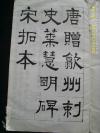 唐贈歙州刺
史葉慧明碑
宋拓本